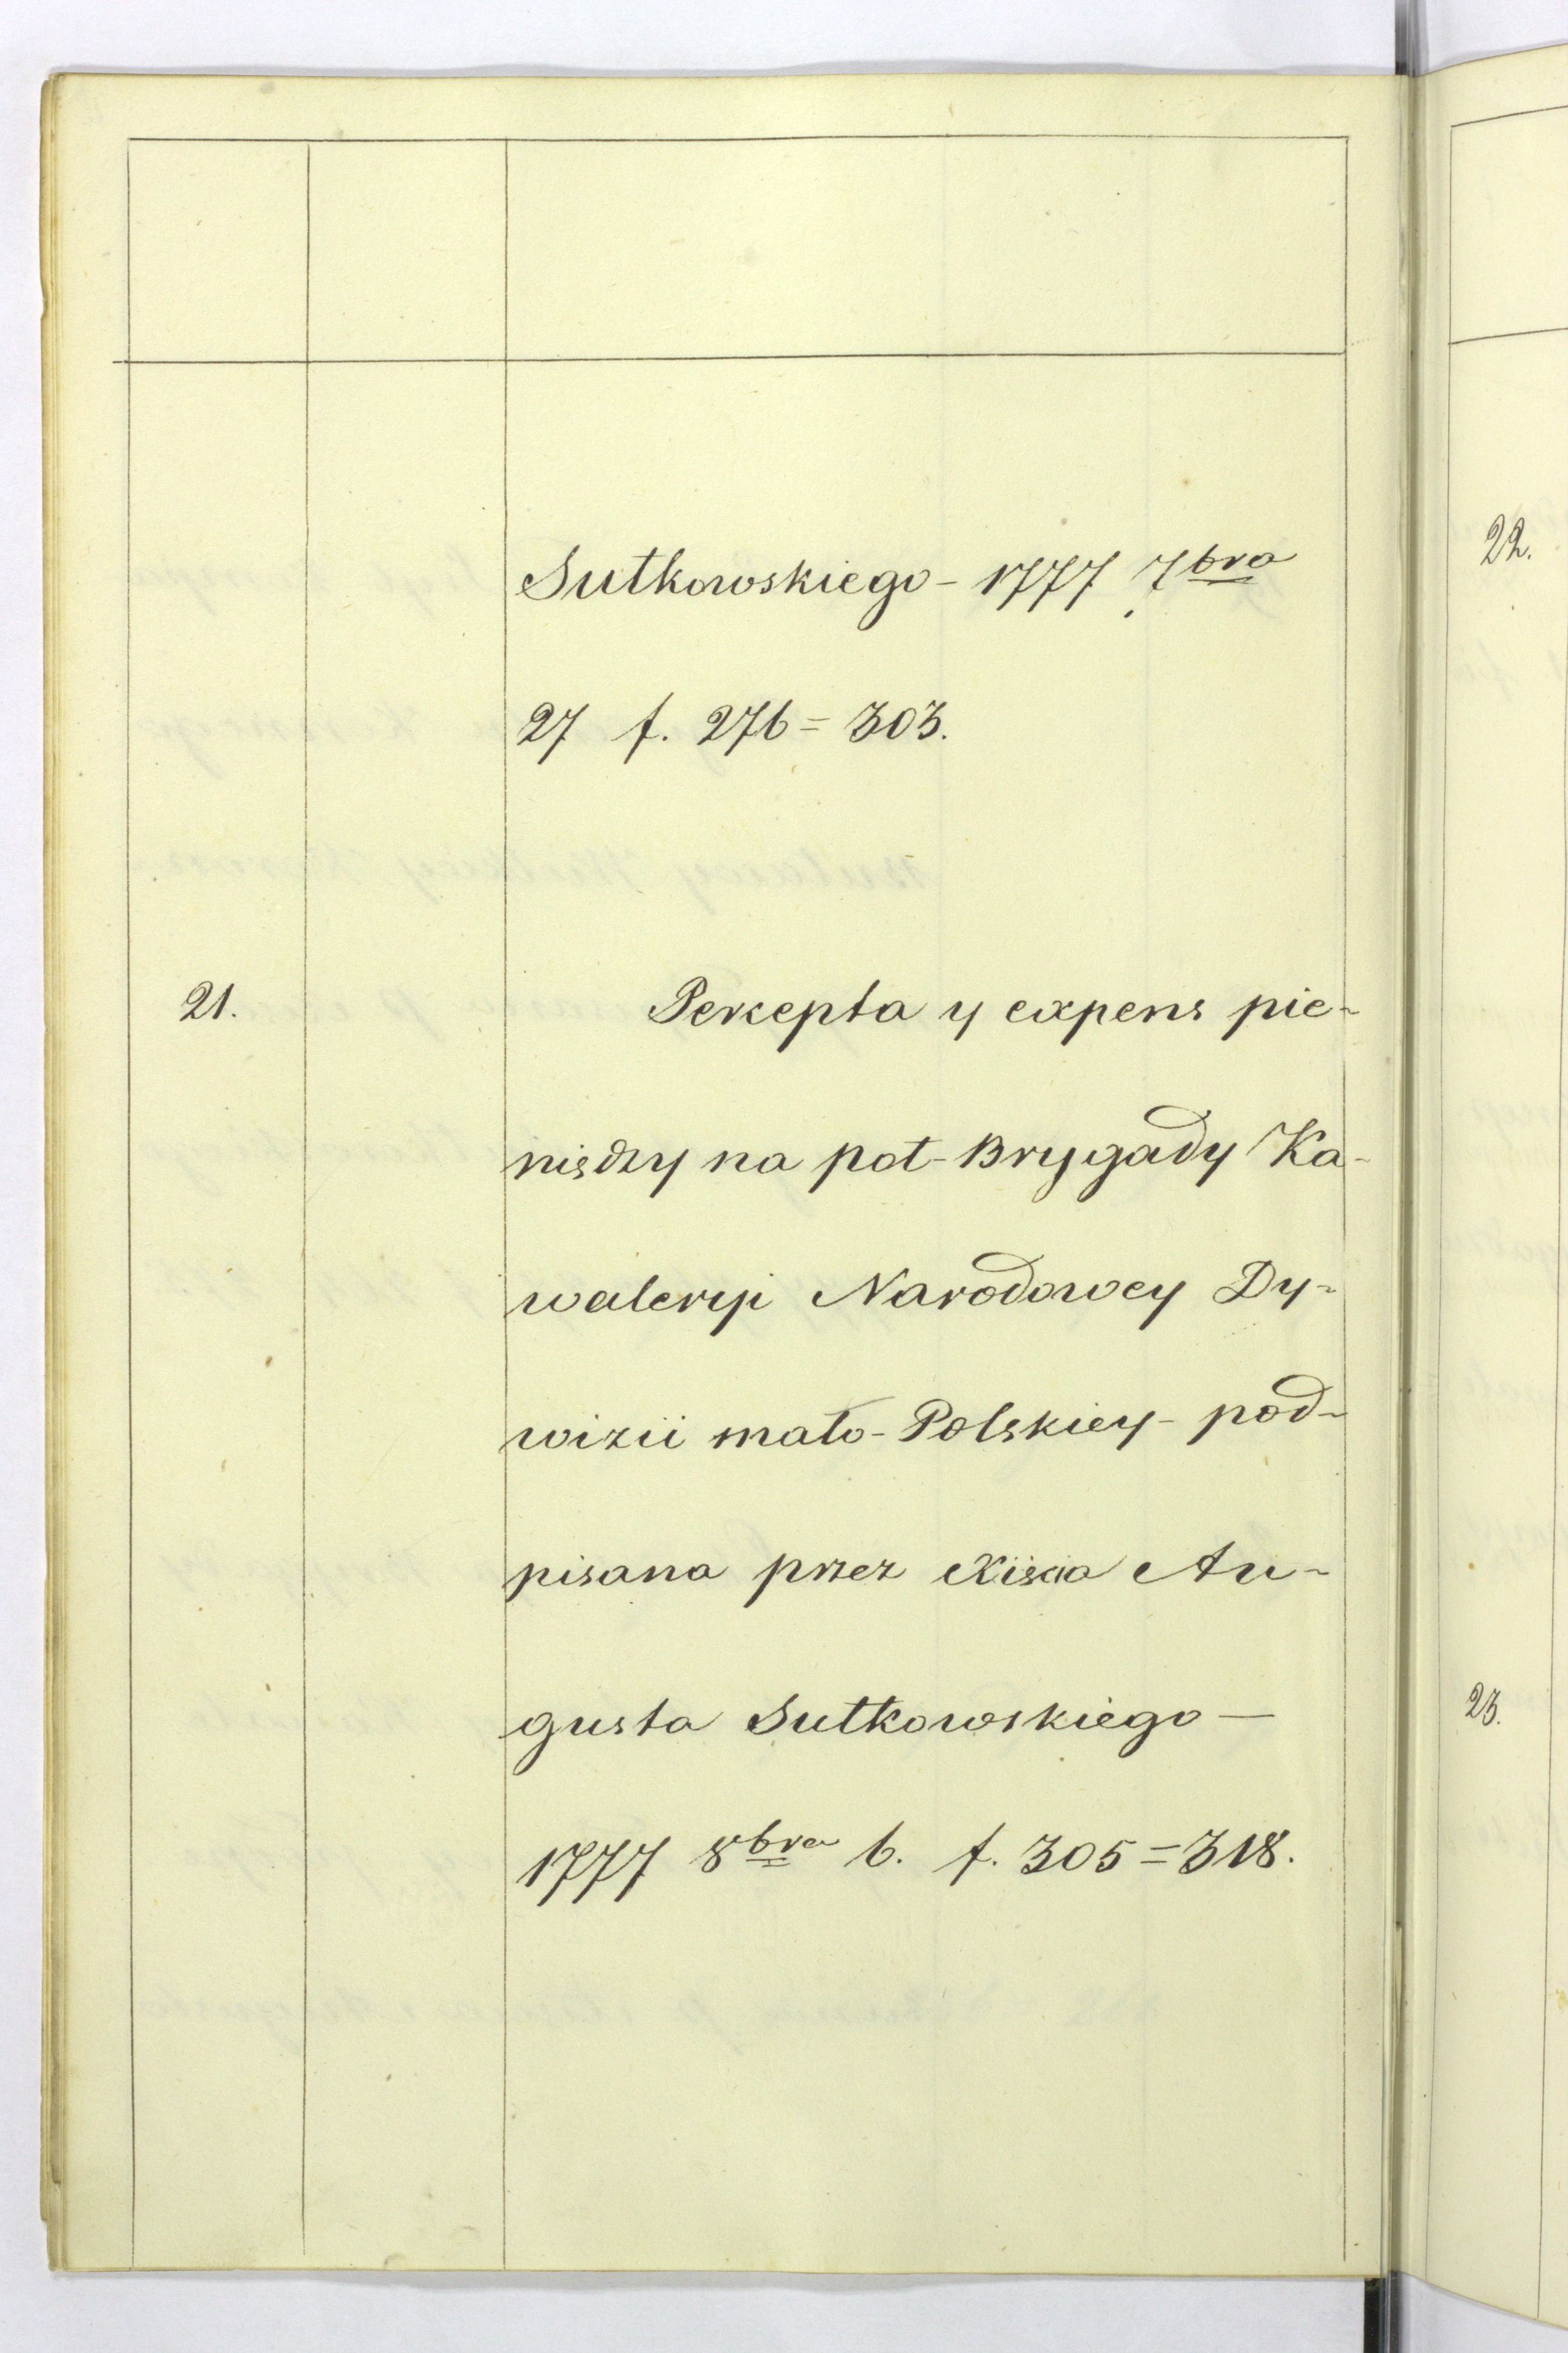 Sułkowskiego - 1777 7bra
27 f. 276 = 303.
21. Percepta y expens pie-
niędzy na poł-Brygady Ka-
waleryi Narodowey Dy-
wizii mało-Polskiey - pod-
pisana przez Xiścia Au-
gusta Sułkowskiego —
1777 8bra 6. f. 305 = 318.
22.
23.